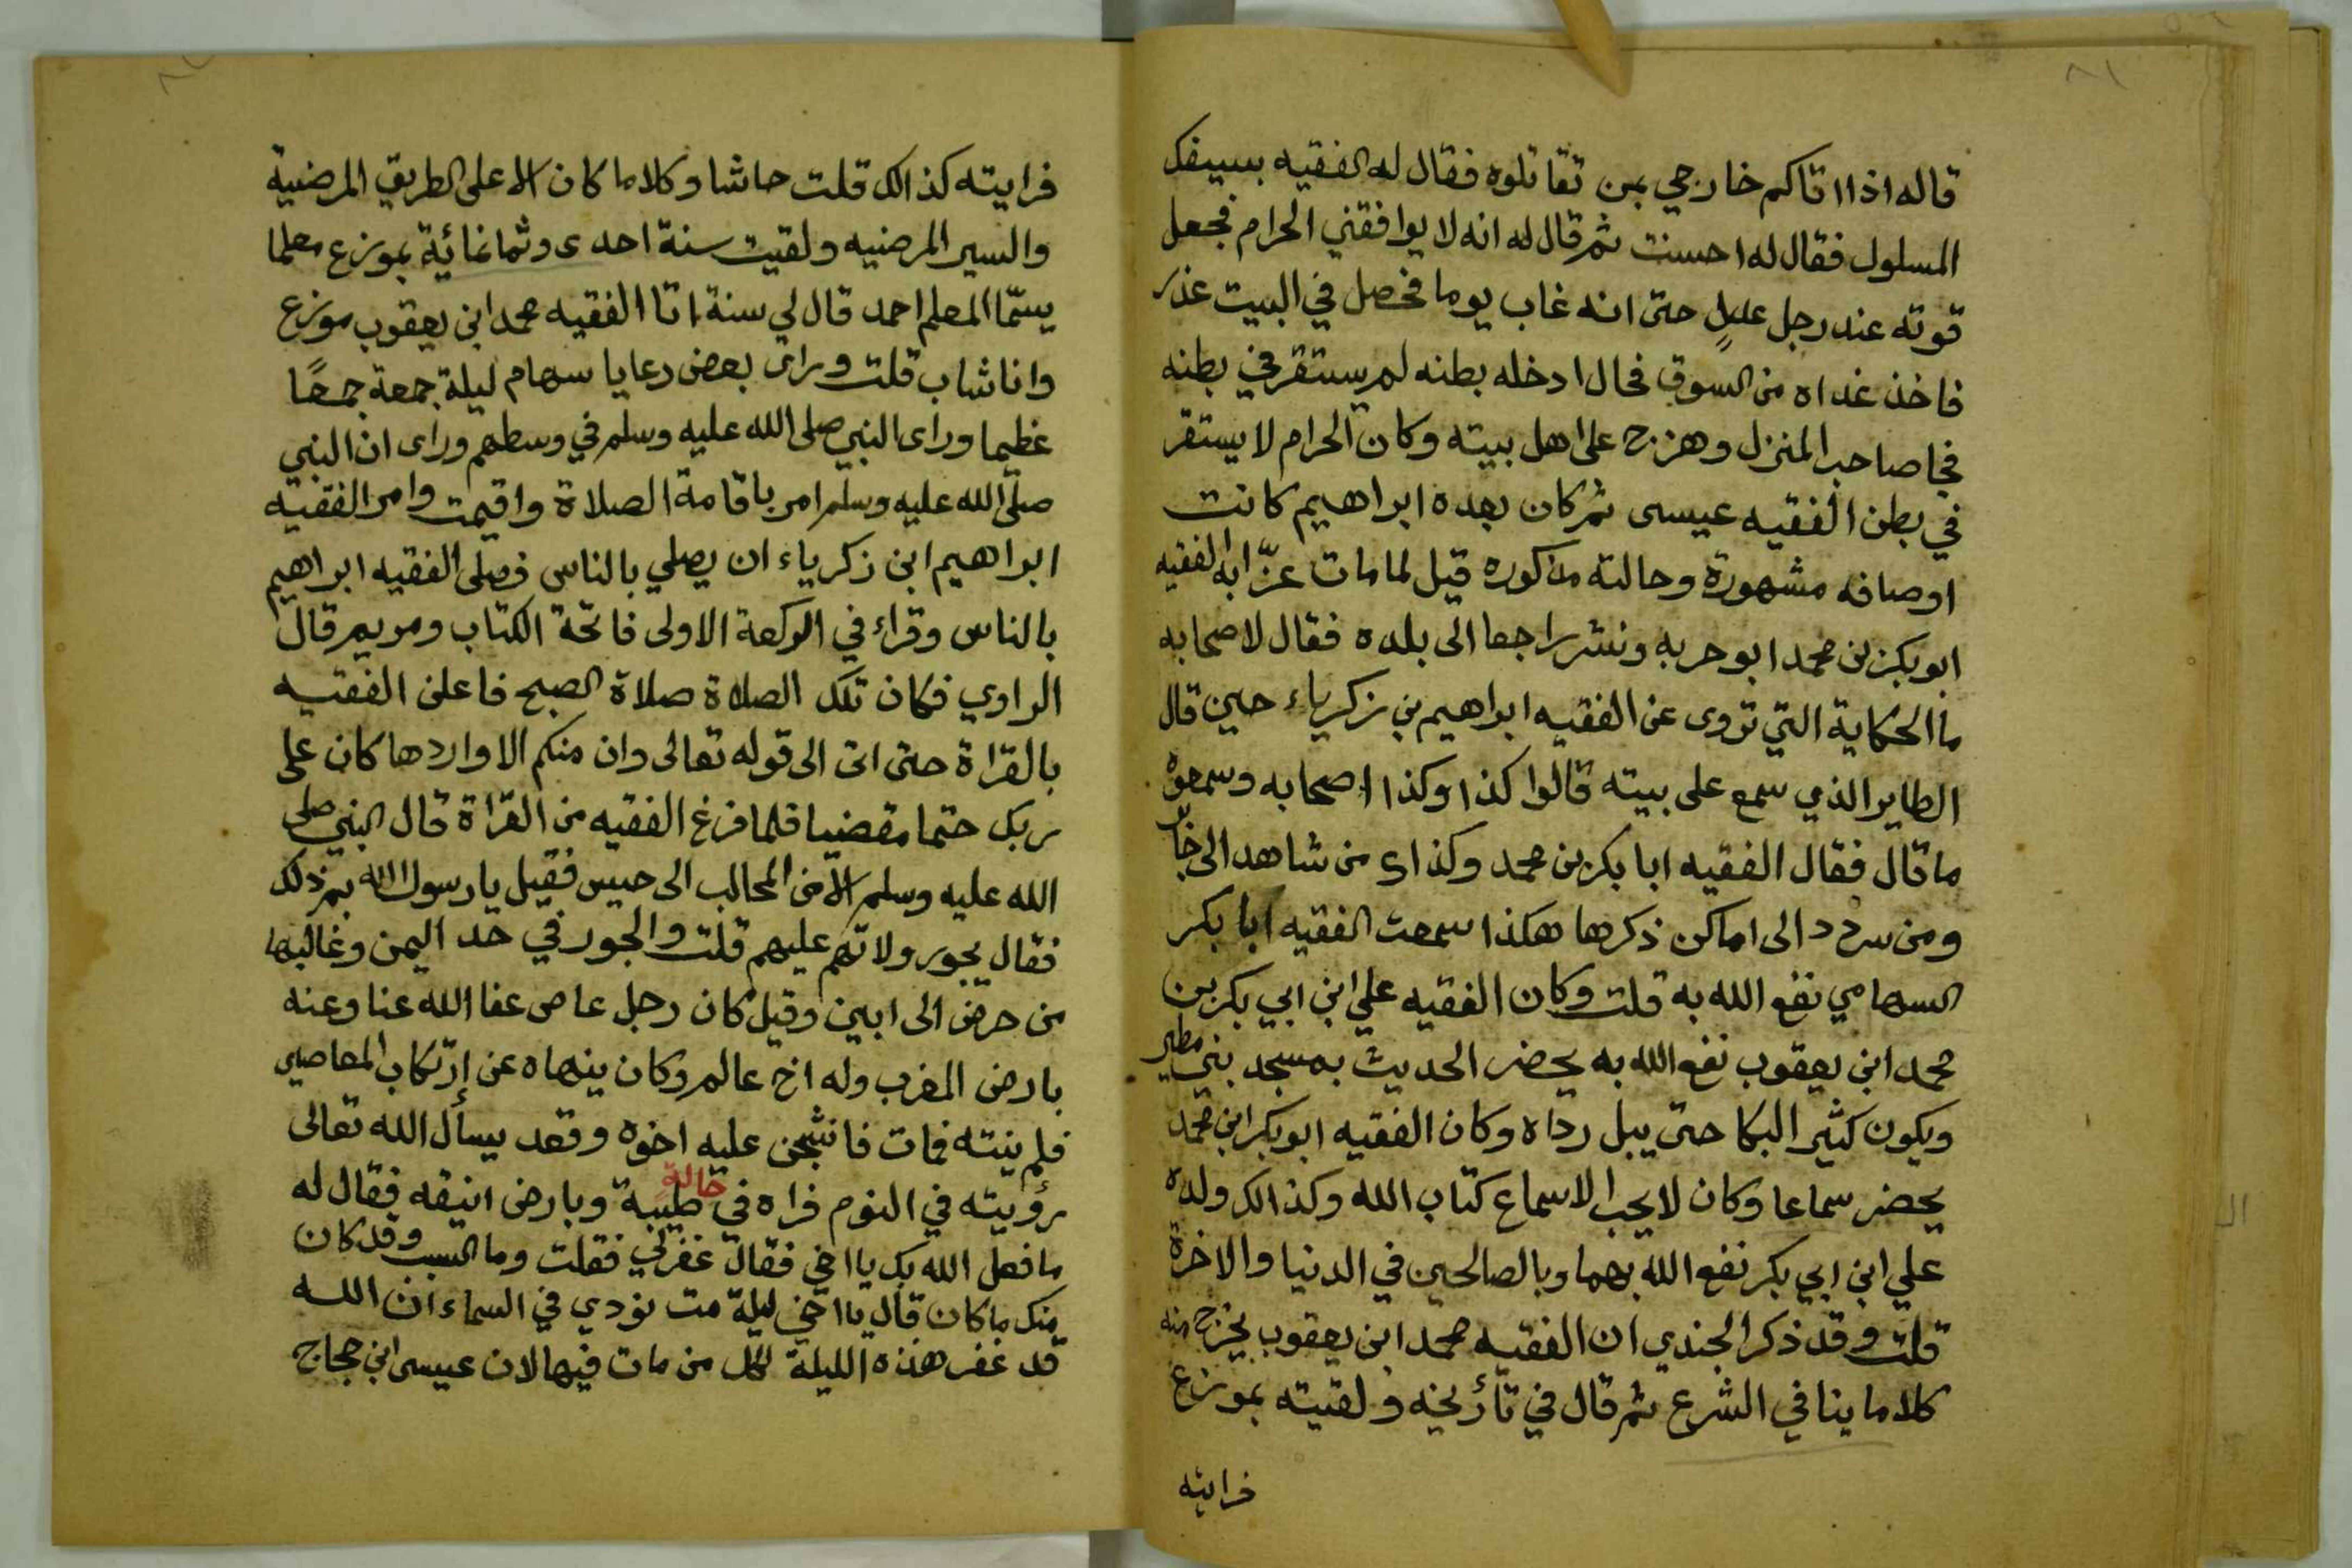 قاله اذا اتاكم خارجي بمن تقاتلوه فقال له الفقيه بسيفك
المسلول فقال له احسنت ثم قال له انه لا يوافقني الحرام فجعل
قوته عند رجل عليٍ حتى انه غاب يوما فحصل في البيت عذر
فاخذ غداه من السوق فحال ادخله بطنه لم يستقر في بطنه
فجا صاحب المنزل وهزج على اهل بيته وكان الحرام لا يستقر
في بطن الفقيه عيسى ثم كان بعده ابراهيم كانت
اوصافه مشهورة وحالته مذكوره قيل لما مات عزّا به الفقيه
ابو بكر بن محمد ابو حربه ونشر راجعا الى بلده فقال لاصحابه
ما الحكاية التي تروى عن الفقيه ابراهيم بن زكرياء حين قال
الطاير الذي سمع على بيته قالوا كذا وكذا اصحابه وسمعوه
ما قال فقال الفقيه ابا بكر بن محمد وكذا اى من شاهد الى
ومن سردد الى اماكن ذكرها هكذا سمعت الفقيه ابا بكر
السهامي نفع الله به قلت وكان الفقيه علي ابن ابي بكر بن
محمد ابن يعقوب نفع الله به يحضر الحديث بمسجد بني مطير
ويكون كثير البكا حتى يبل رداه وكان الفقيه ابو بكر ابن محمد
يحضر سماعا وكان لا يحب الا سماع كتاب الله وكذالك ولده
علي ابن ابي بكر نفع الله بهما وبالصالحين في الدنيا والاخرة
قلت وقد ذكر الجندي ان الفقيه محمد ابن يعقوب يخرج منه
كلاما ينافي الشرع ثم قال في تأريخه ولقيته بموزع
فرايته
فرايته كذالك قلت حاشا وكلا ما كان الا على الطريق المرضية
والسير المرضيه ولقيت سنة احدى وثمانمائية بموزع معلما
يسمّا المعلم احمد قال لي سنة اتا الفقيه محمد ابن يعقوب موزع
وانا شاب قلت وراى بعض رعايا سهام ليلة جمعة جمعًا
عظيما وراى النبي صلى الله عليه وسلم في وسطهم وراى ان النبي
صلى الله عليه وسلم امر باقامة الصلاة واقيمت وامر الفقيه
ابراهيم ابن زكرياء ان يصلي بالناس فصلى الفقيه ابراهيم
بالناس وقراء في الركعة الاولى فاتحة الكتاب ومريم قال
الراوي فكان تلك الصلاة صلاة الصبح فاعلن الفقيه
بالقراة حتى اتى الى قوله تعالى وان منكم الا واردها كان على
ربك حتما مقضيا فلما فرغ الفقيه من القراة قال النبي صلى
الله عليه وسلم الا من المحالب الى حيس فقيل يا رسول الله بم ذلك
فقال بجور ولاتهم عليهم قلت والجور في حد اليمن وغالبها
من حرض الى ابين وقيل كان رجل عاص عفا الله عنا وعنه
بارض المغرب وله اخ عالم وكان ينهاه عن إرتكاب المعاصي
فلم ينته فمات فانشجن عليه اخوه وقعد يسأل الله تعالى
رؤيته في النوم فراه في حالةٍ طيبة وبارض انيقه فقال له
ما فعل الله بك يا اخي فقال غفر لي فقلت وما السبب وقد كان
منك ما كان قال يا اخي ليلة مت نودي في السماء ان الله
قد غفر هذه الليلة لكل من مات فيها لان عيسى ابن حجاج